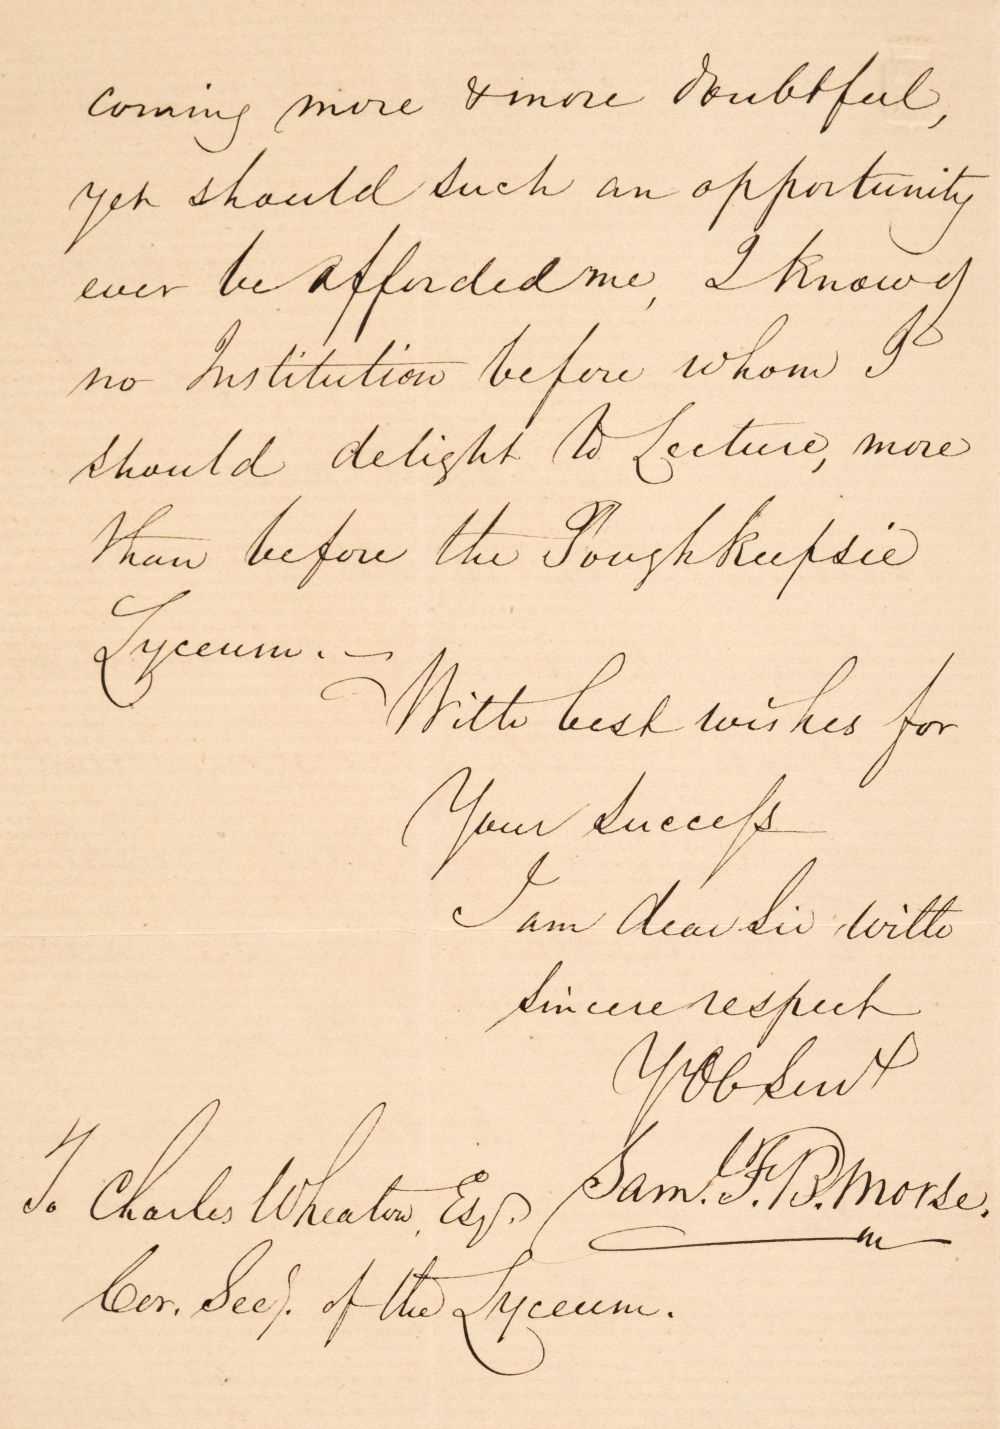 coming more & more doubtful,
yet should such an opportunity
ever be afforded me, I know of
no Institution before whom I
should delight to Lecture, more
than before the Poughkeepsie
Lyceum. —
With best wishes for
Your success
I am dear Sir with
sincere respect
Yr Ob Servt
Sam. F. B. Morse.
To Charles Wheaton, Esq.
Cor. Secy. of the Lyceum.